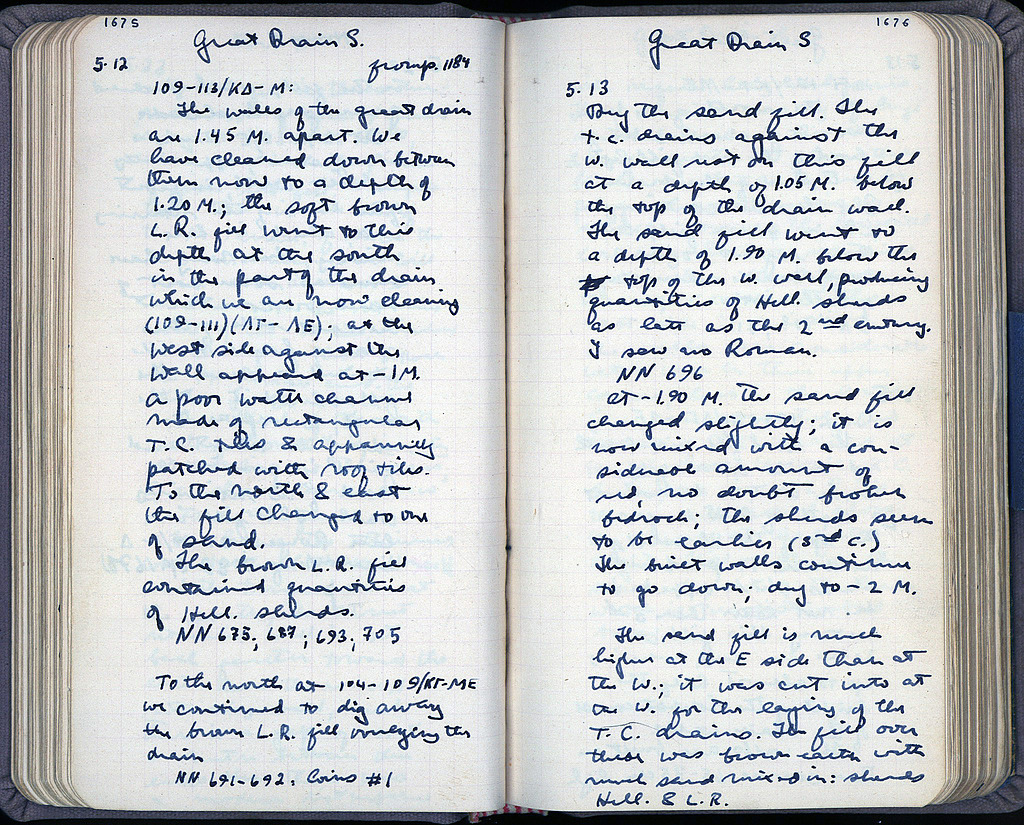 1675
Great Drain S.
5·12 from p. 1184
109-113/ΚΔ-Μ:
The walls of the great drain
are 1.45 M. apart. We
have cleaned down between
them now to a depth of
1.20 M.; the soft brown
L.R. fill went to this
depth at the south
in the part of the drain
which we are now cleaning
(109-111)(ΛΓ-ΛΕ); at the
west side against the
wall appeared at -1 M.
a poor water channel
made of rectangular
T.C. tiles & apparently
patched with roof tiles.
To the north & east
the fill changed to one
of sand.
The brown L.R. fill
contained quantities
of Hell. sherds.
NN 675; 687; 693; 705
To the north at 104-109/ΚΓ-ΜΕ
we continued to dig away
the brown L.R. fill overlying the
drain
NN 691-692: Coins #1
1676
Great Drain S
5·13
Dug the sand fill. The
t.c. drains against the
W. wall rest on this fill
at a depth of 1.05 M. below
the top of the drain wall.
The sand fill went to
a depth of 1.90 M. below the
top of the W. wall, producing
quantities of Hell. sherds
as late as the 2nd century.
I saw no Roman.
NN 696
At -1.90 M. the sand fill
changed slightly; it is
now mixed with a con-
siderable amount of
red, no doubt broken
bedrock; the sherds seem
to be earlier (3rd C.)
The built walls continue
to go down; dug to -2 M.
The sand fill is much
higher at the E side than at
the W.; it was cut into at
the W. for the laying of the
T.C. drains. The fill over
these was brown earth with
much sand mixed in: sherds
Hell. & L.R.